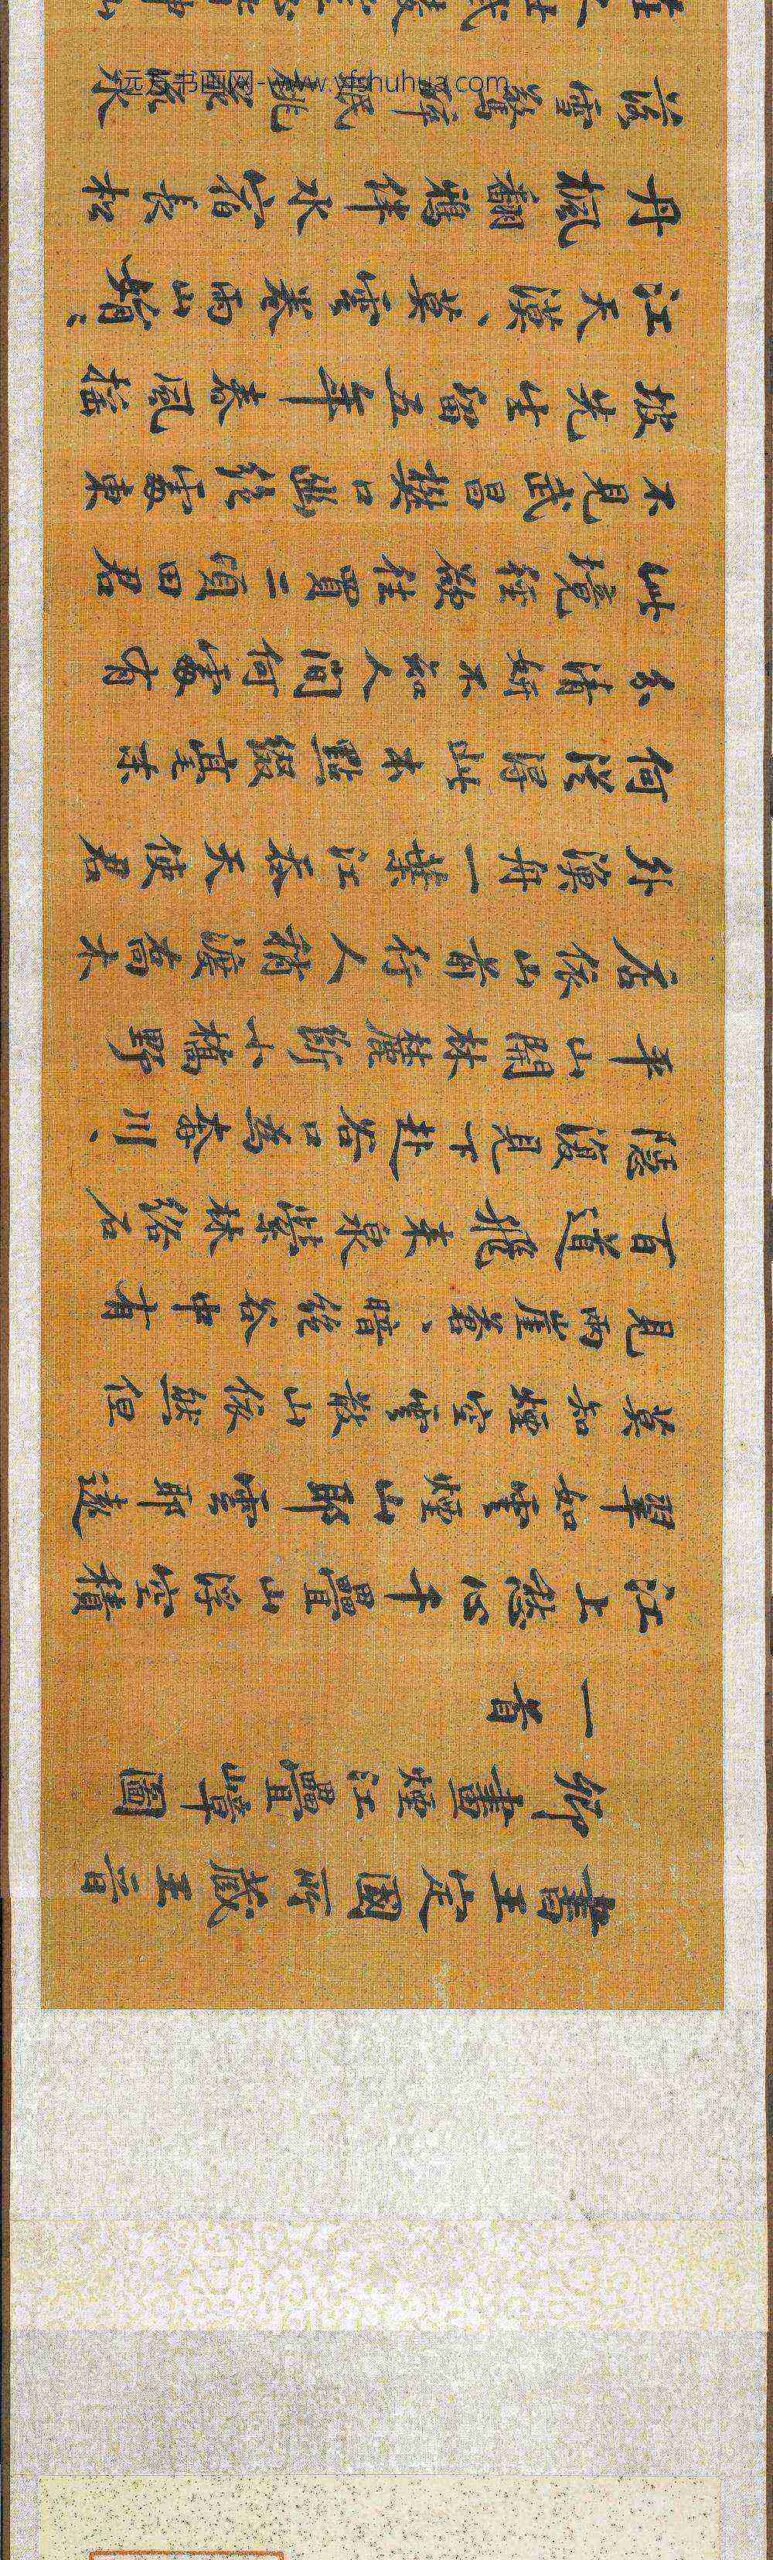 書王定國所藏王晉
卿畫煙江疊嶂圖
一首
江上愁心千疊山浮空積
翠如雲煙山耶雲耶遠
莫知煙空雲散山依然但
見兩崖蒼〻暗絕谷中有
百道飛来泉縈林絡石
隱復見下赴谷口為奔川〻
平山開林麓斷小橋野
店依山前行人稍渡喬木
外漁舟一葉江吞天使君
何從得此本點綴毫末
分清妍不知人間何處有
此境徑欲往買二頃田君
不見武昌樊口幽絕處東
坡先生留五年春風搖
江天漠〻暮雲卷雨山娟〻
丹楓翻鴉伴水宿長松
落雪驚醉眠桃花流水
远方书画网-www.yfshuhua.com